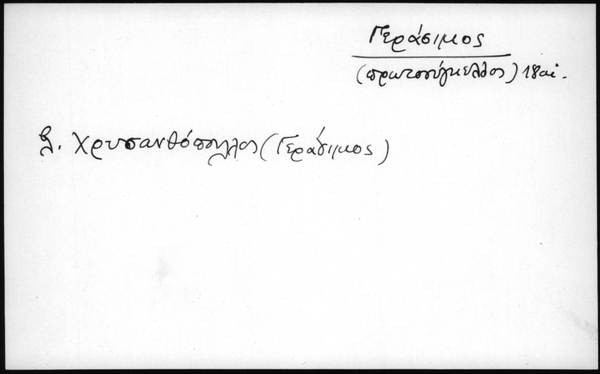 Γεράσιμος
(πρωτοσύγκελλος) 18 αἰ.
βλ. Χρυσανθόπουλλος (Γεράσιμος)